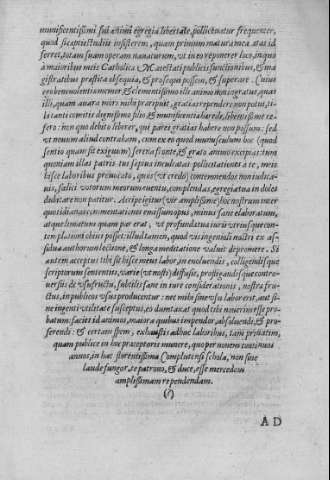 munificentissimi sui animi egregia libertate, pollicitatur frequenter,
quod si captis studiis insisterem, quam primum matura mea ætas id
ferret, totam suam operam nauaturum, vt in eo reponerer loco, in quo
à maioribus meis Catholicæ Maiestati publicis functionibus, & ma
gistratibus præstita obsequia, & prosequi possem, & superare. Cuius
ergo beneuolentiæ memor, & clementissimo illi animo non ingratus, quas
illi, quam auara mors mihi præripuit, gratias rependere non potui, ti-
bi tanti comitis dignissimo filio & munificentiæ hærede, libentissimè re
fero: non quo debito liberer, qui pares gratias habere non possum: sed
vt nouum aliud contraham, cum ex eo quod munusculum hoc (quod
sentio quam sit exiguum) serena fronte, & grato animo excipias: tum
quoniam illas patris tui sæpius inculcatas pollicitationes à te, meis
hisce laboribus prouocato, quos (vt credo) contemnendos non iudica-
uis, fœlici votorum meorum euentu, complendas, egregia tua in doles
dubitare non patitur. Accipe igitur (vir amplissime) hoc nostrum inter
quotidianas commentationes enassum opus, minus sane elaboratum,
atque limatum quam par erat, vt profunda tua iuris vtriusque con-
templatione dici posset: illud tamen, quod vis ingenioli nostri ex as-
sidua authorum lectione, & longa meditatione valuit depromere. Si
autem acceptus tibi sit hic se meus labor, in euoluendis, colligendisque
scriptorum sententiis, varie (vt nosti) diffusis, profligandisque contro-
uersiis de vsufructu, subtili sane in iure consideratione, nostra fru-
ctus, in publicos vsus producentur: nec mihi sine vsu labor erit, aut si-
ne ingenti vtilitate susceptus, eo dumtaxat quod tibi noueri messe pro-
batum: faciet id animus, maiora quibus impendor, absoluendi, & pro-
ferendi: & certam spem, exhausti adhuc laboribus, tam priuatim,
quam publice in hoc præceptoris munere, quo per nouem continuos
annos, in hac florentissima Complutensi schola, non sine
laude fungor, te patrono, & duce, esse mercedem
amplissimam rependendam.
(?)
AD